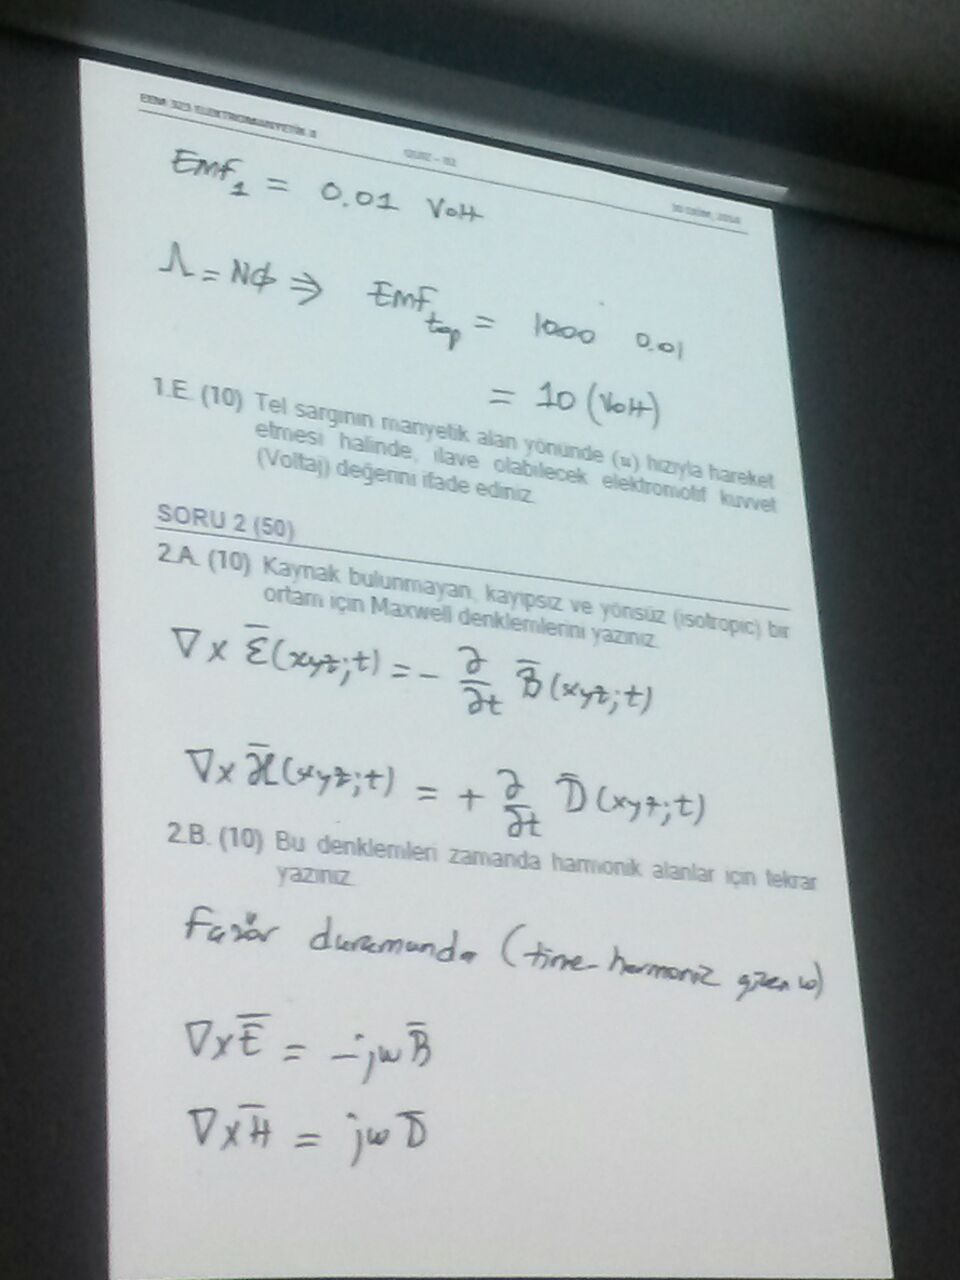 EEM 323 ELEKTROMANYETİK II
QUIZ - 02
30 EKİM, 2014
Emf₁ = 0.01 Volt
Λ = NΦ ⇒ Emf_top = 1000 0.01
= 10 (Volt)
1.E. (10) Tel sargının manyetik alan yönünde (u) hızıyla hareket
etmesi halinde, ilave olabilecek elektromotif kuvvet
(Voltaj) değerini ifade ediniz.
SORU 2 (50)
2.A. (10) Kaynak bulunmayan, kayıpsız ve yönsüz (isotropic) bir
ortam için Maxwell denklemlerini yazınız.
∇ x Ɛ̄(xyz;t) = - ∂/∂t B̄(xyz;t)
∇x ℋ̄(xyz;t) = + ∂/∂t D̄(xyz;t)
2.B. (10) Bu denklemleri zamanda harmonik alanlar için tekrar
yazınız.
Fazör durumunda (time-harmonic ω)
∇xĒ = -jωB̄
∇xH̄ = jωD̄